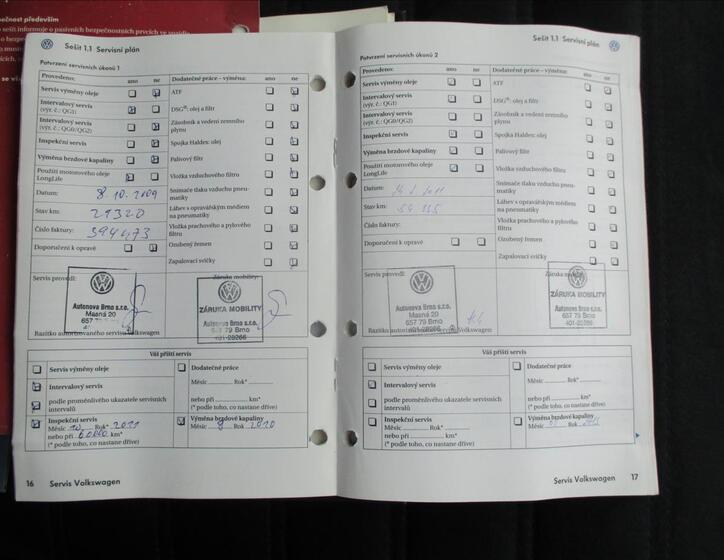 pečnost především
Sešit 1.1 Servisní plán
Potvrzení servisních úkonů 1
Provedeno: ano ne
Servis výměny oleje
Intervalový servis
(výr. č.: QG1)
Intervalový servis
(výr. č.: QG0/QG2)
Inspekční servis
Výměna brzdové kapaliny
Použití motorového oleje
LongLife
Datum: 8. 10. 2009
Stav km: 29320
Číslo faktury: 394473
Doporučení k opravě
Dodatečné práce – výměna: ano ne
ATF
DSG®: olej a filtr
Zásobník a vedení zemního
plynu
Spojka Haldex: olej
Palivový filtr
Vložka vzduchového filtru
Snímače tlaku vzduchu pneu-
matiky
Láhev s opravářským médiem
na pneumatiky
Vložka prachového a pylového
filtru
Ozubený řemen
Zapalovací svíčky
Servis provedl:
Autonova Brno s.r.o.
Masná 20
657 79 Brno
Razítko autorizovaného servisu Volkswagen
Záruka mobility:
ZÁRUKA MOBILITY
Autonova Brno s.r.o.
657 79 Brno
401-28266
Váš příští servis
Servis výměny oleje
Intervalový servis
podle proměnlivého ukazatele servisních
intervalů
Inspekční servis
Měsíc 10 Rok* 2011
nebo při 60000 km*
(* podle toho, co nastane dříve)
Dodatečné práce
Měsíc Rok*
nebo při km*
(* podle toho, co nastane dříve)
Výměna brzdové kapaliny
Měsíc 9 Rok 2010
16 Servis Volkswagen
Sešit 1.1 Servisní plán
Potvrzení servisních úkonů 2
Provedeno: ano ne
Servis výměny oleje
Intervalový servis
(výr. č.: QG1)
Intervalový servis
(výr. č.: QG0/QG2)
Inspekční servis
Výměna brzdové kapaliny
Použití motorového oleje
LongLife
Datum:
Stav km:
Číslo faktury:
Doporučení k opravě
Dodatečné práce – výměna: ano ne
ATF
DSG®: olej a filtr
Zásobník a vedení zemního
plynu
Spojka Haldex: olej
Palivový filtr
Vložka vzduchového filtru
Snímače tlaku vzduchu pneu-
matiky
Láhev s opravářským médiem
na pneumatiky
Vložka prachového a pylového
filtru
Ozubený řemen
Zapalovací svíčky
Servis provedl:
Autonova Brno s.r.o.
Masná 20
657 79 Brno
Razítko autorizovaného servisu Volkswagen
Záruka mobility:
ZÁRUKA MOBILITY
Autonova Brno s.r.o.
657 79 Brno
401-28266
Váš příští servis
Servis výměny oleje
Intervalový servis
podle proměnlivého ukazatele servisních
intervalů
Inspekční servis
Měsíc Rok*
nebo při km*
(* podle toho, co nastane dříve)
Dodatečné práce
Měsíc Rok*
nebo při km*
(* podle toho, co nastane dříve)
Výměna brzdové kapaliny
Měsíc Rok
Servis Volkswagen 17